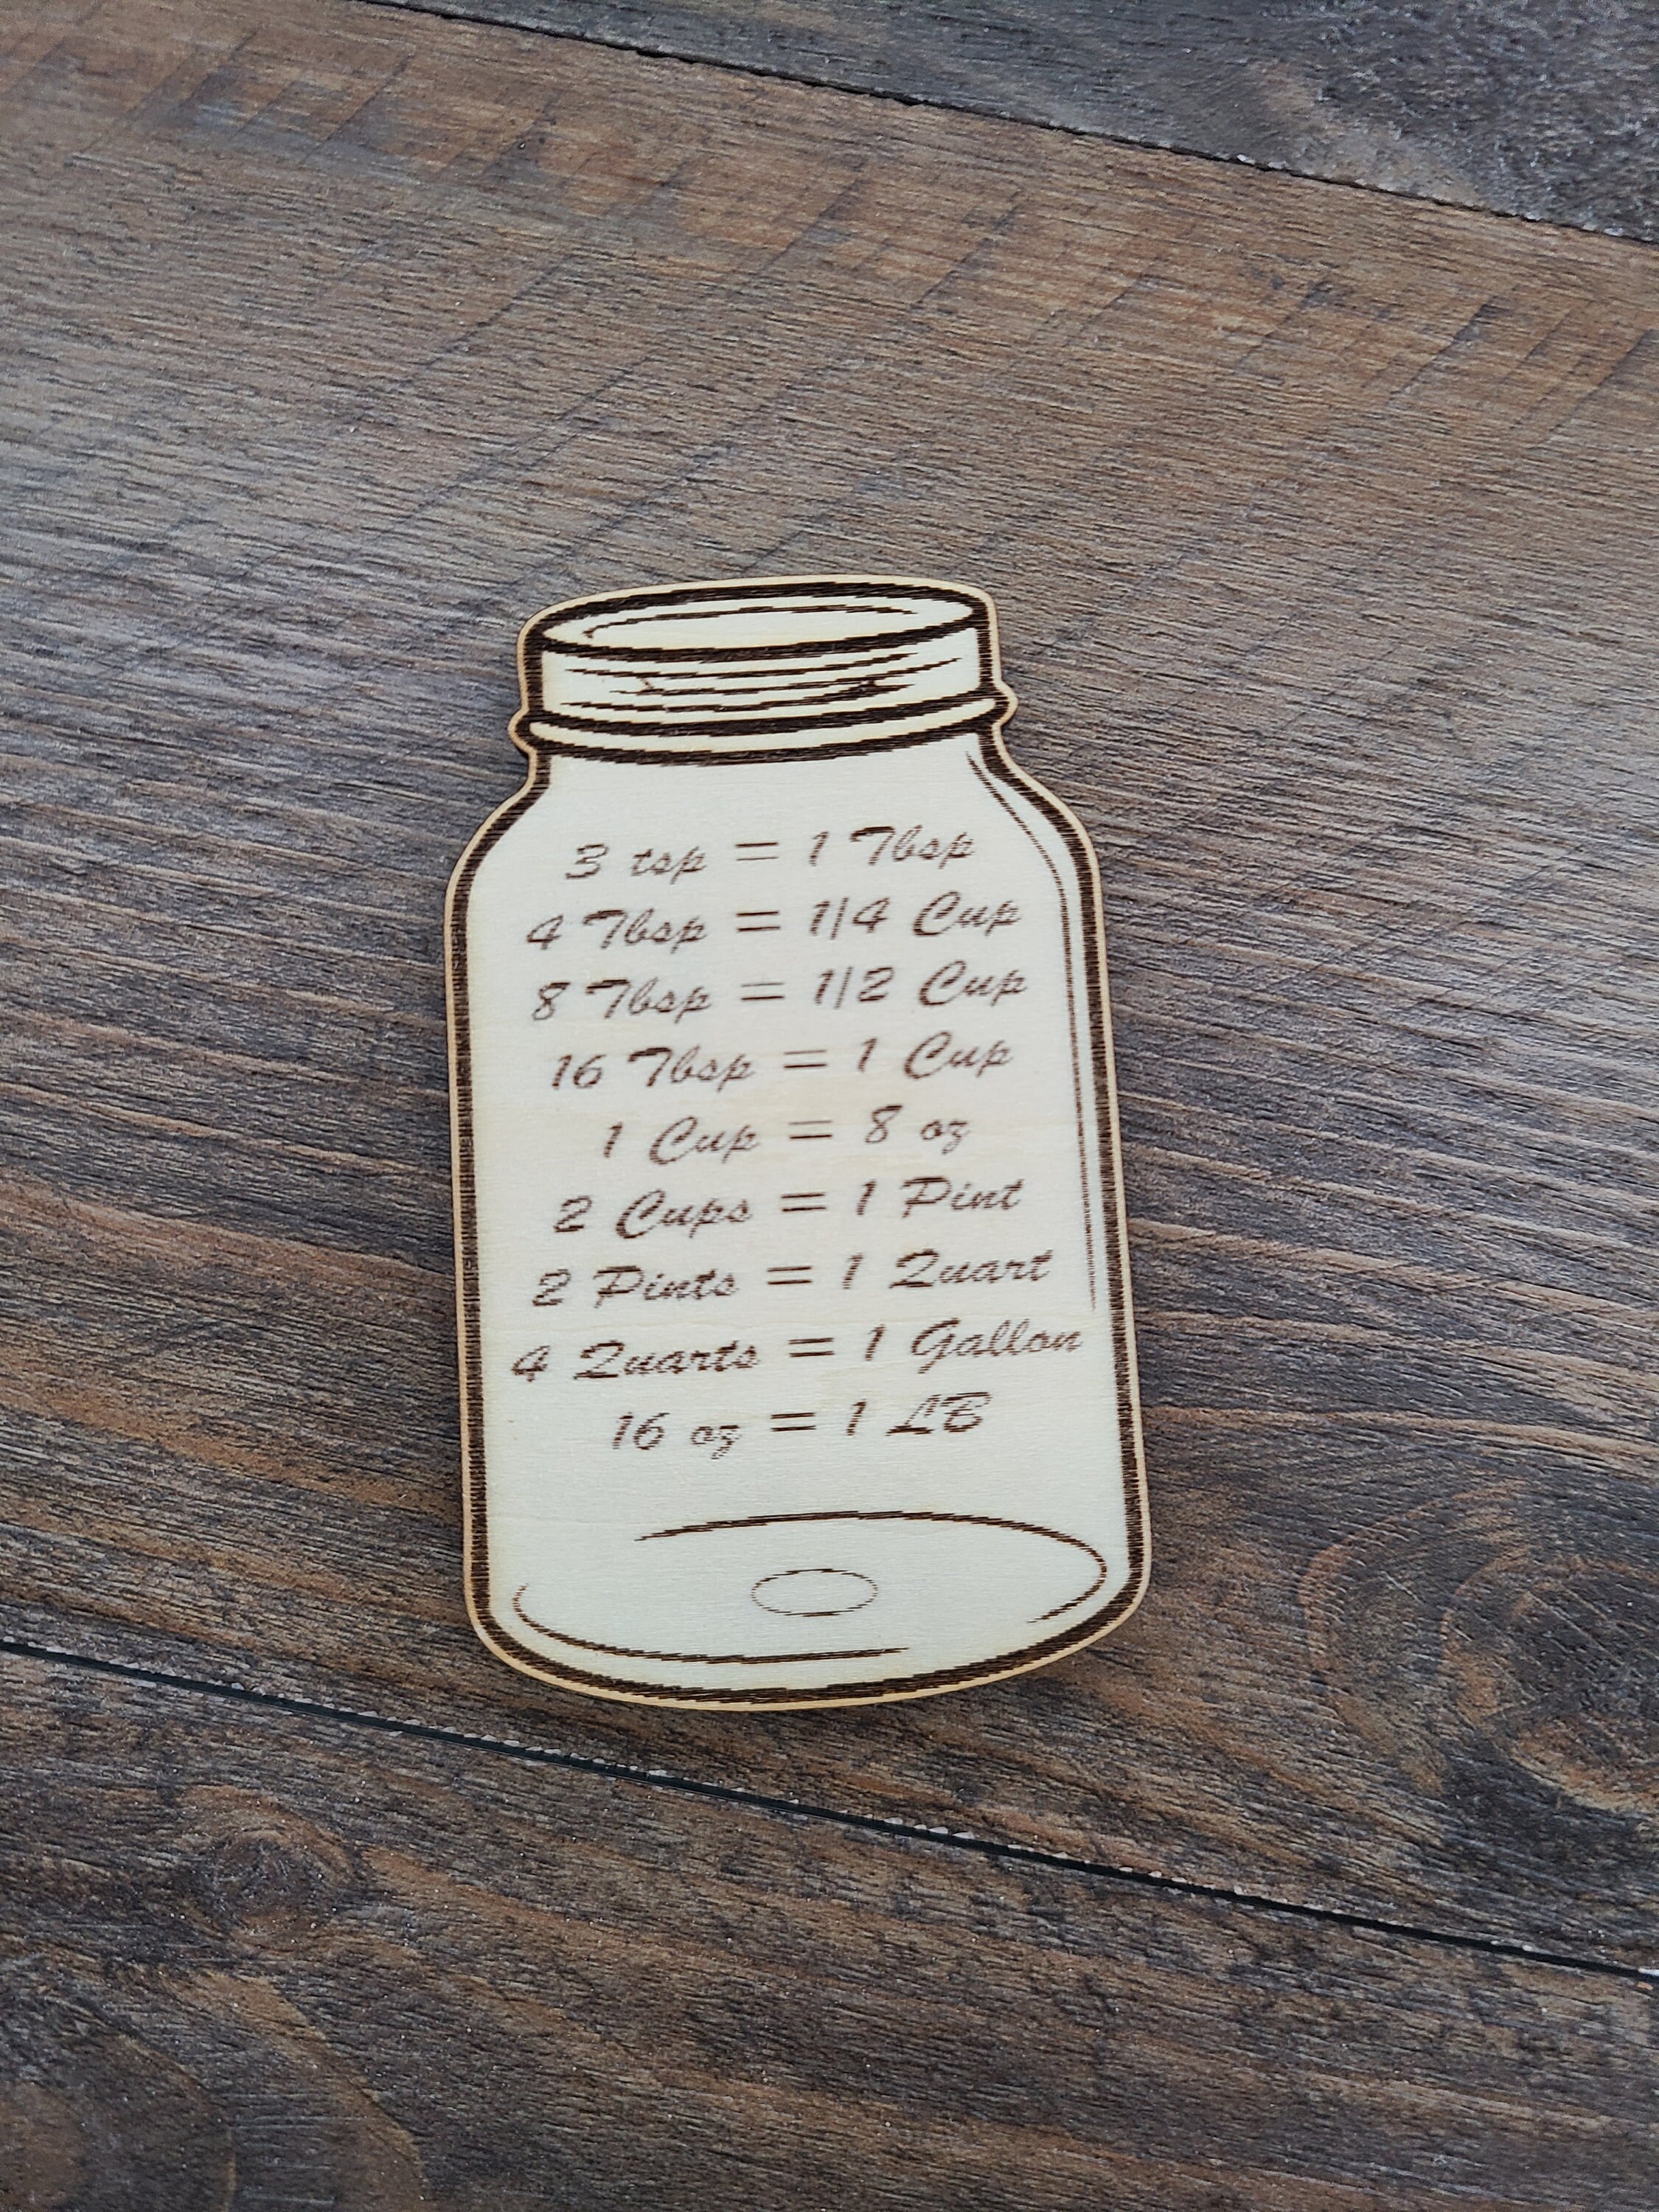 3 tsp = 1 Tbsp
4 Tbsp = 1/4 Cup
8 Tbsp = 1/2 Cup
16 Tbsp = 1 Cup
1 Cup = 8 oz
2 Cups = 1 Pint
2 Pints = 1 Quart
4 Quarts = 1 Gallon
16 oz = 1 LB